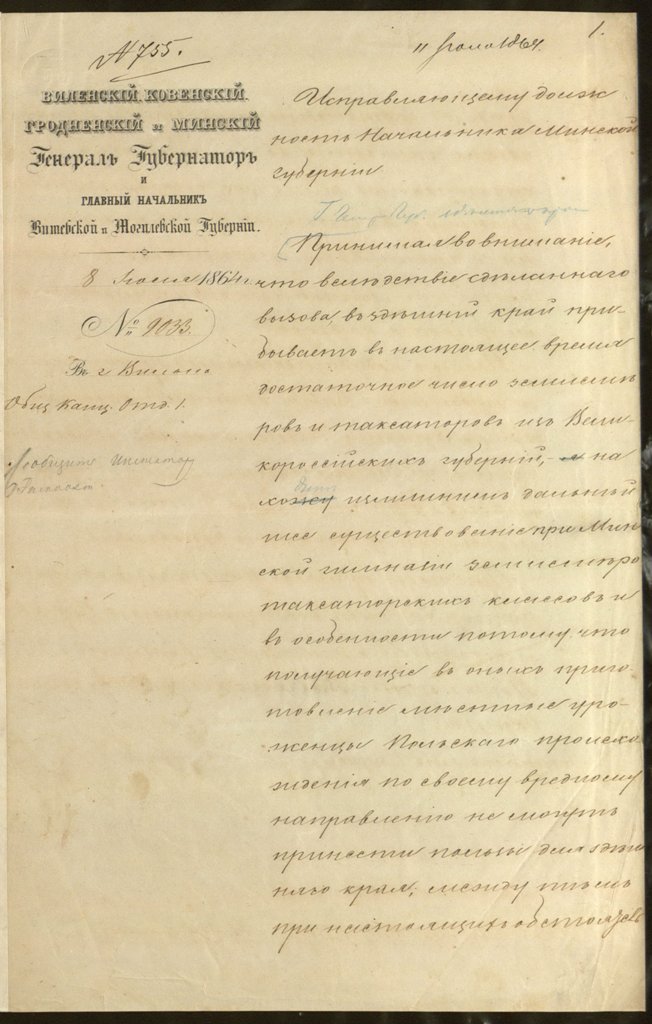 № 755.
11 Июля 1864.
1.
ВИЛЕНСКІЙ, КОВЕНСКІЙ
ГРОДНЕНСКІЙ и МИНСКІЙ
Генералъ Губернаторъ
И
ГЛАВНЫЙ НАЧАЛЬНИКЪ
Витебской и Могилевской Губерніи.
8 Іюля 1864 г.
№ 9033.
Въ г. Вильно
Общ. Канц. Отд. 1.
Сообщить
Исправляющему долж
ность Начальника Минской
губерніи
Принимая во вниманіе,
что вслѣдствіе сдѣланнаго
вызова, въ здѣшній край при-
бываетъ въ настоящее время
достаточное число землемѣ
ровъ и таксаторовъ изъ Вели-
короссійскихъ губерній, на
хожу излишнимъ дальнѣй
шее существованіе при Мин
ской гимназіи землемѣро
таксаторскихъ классовъ и
въ особенности потому, что
получающіе въ оныхъ приго-
товленіе мѣстные уро-
женцы Польскаго происхо
жденія по своему вредному
направленію не могутъ
принести пользы для здѣш
няго края, между тѣмъ
при настоящихъ обстоятель